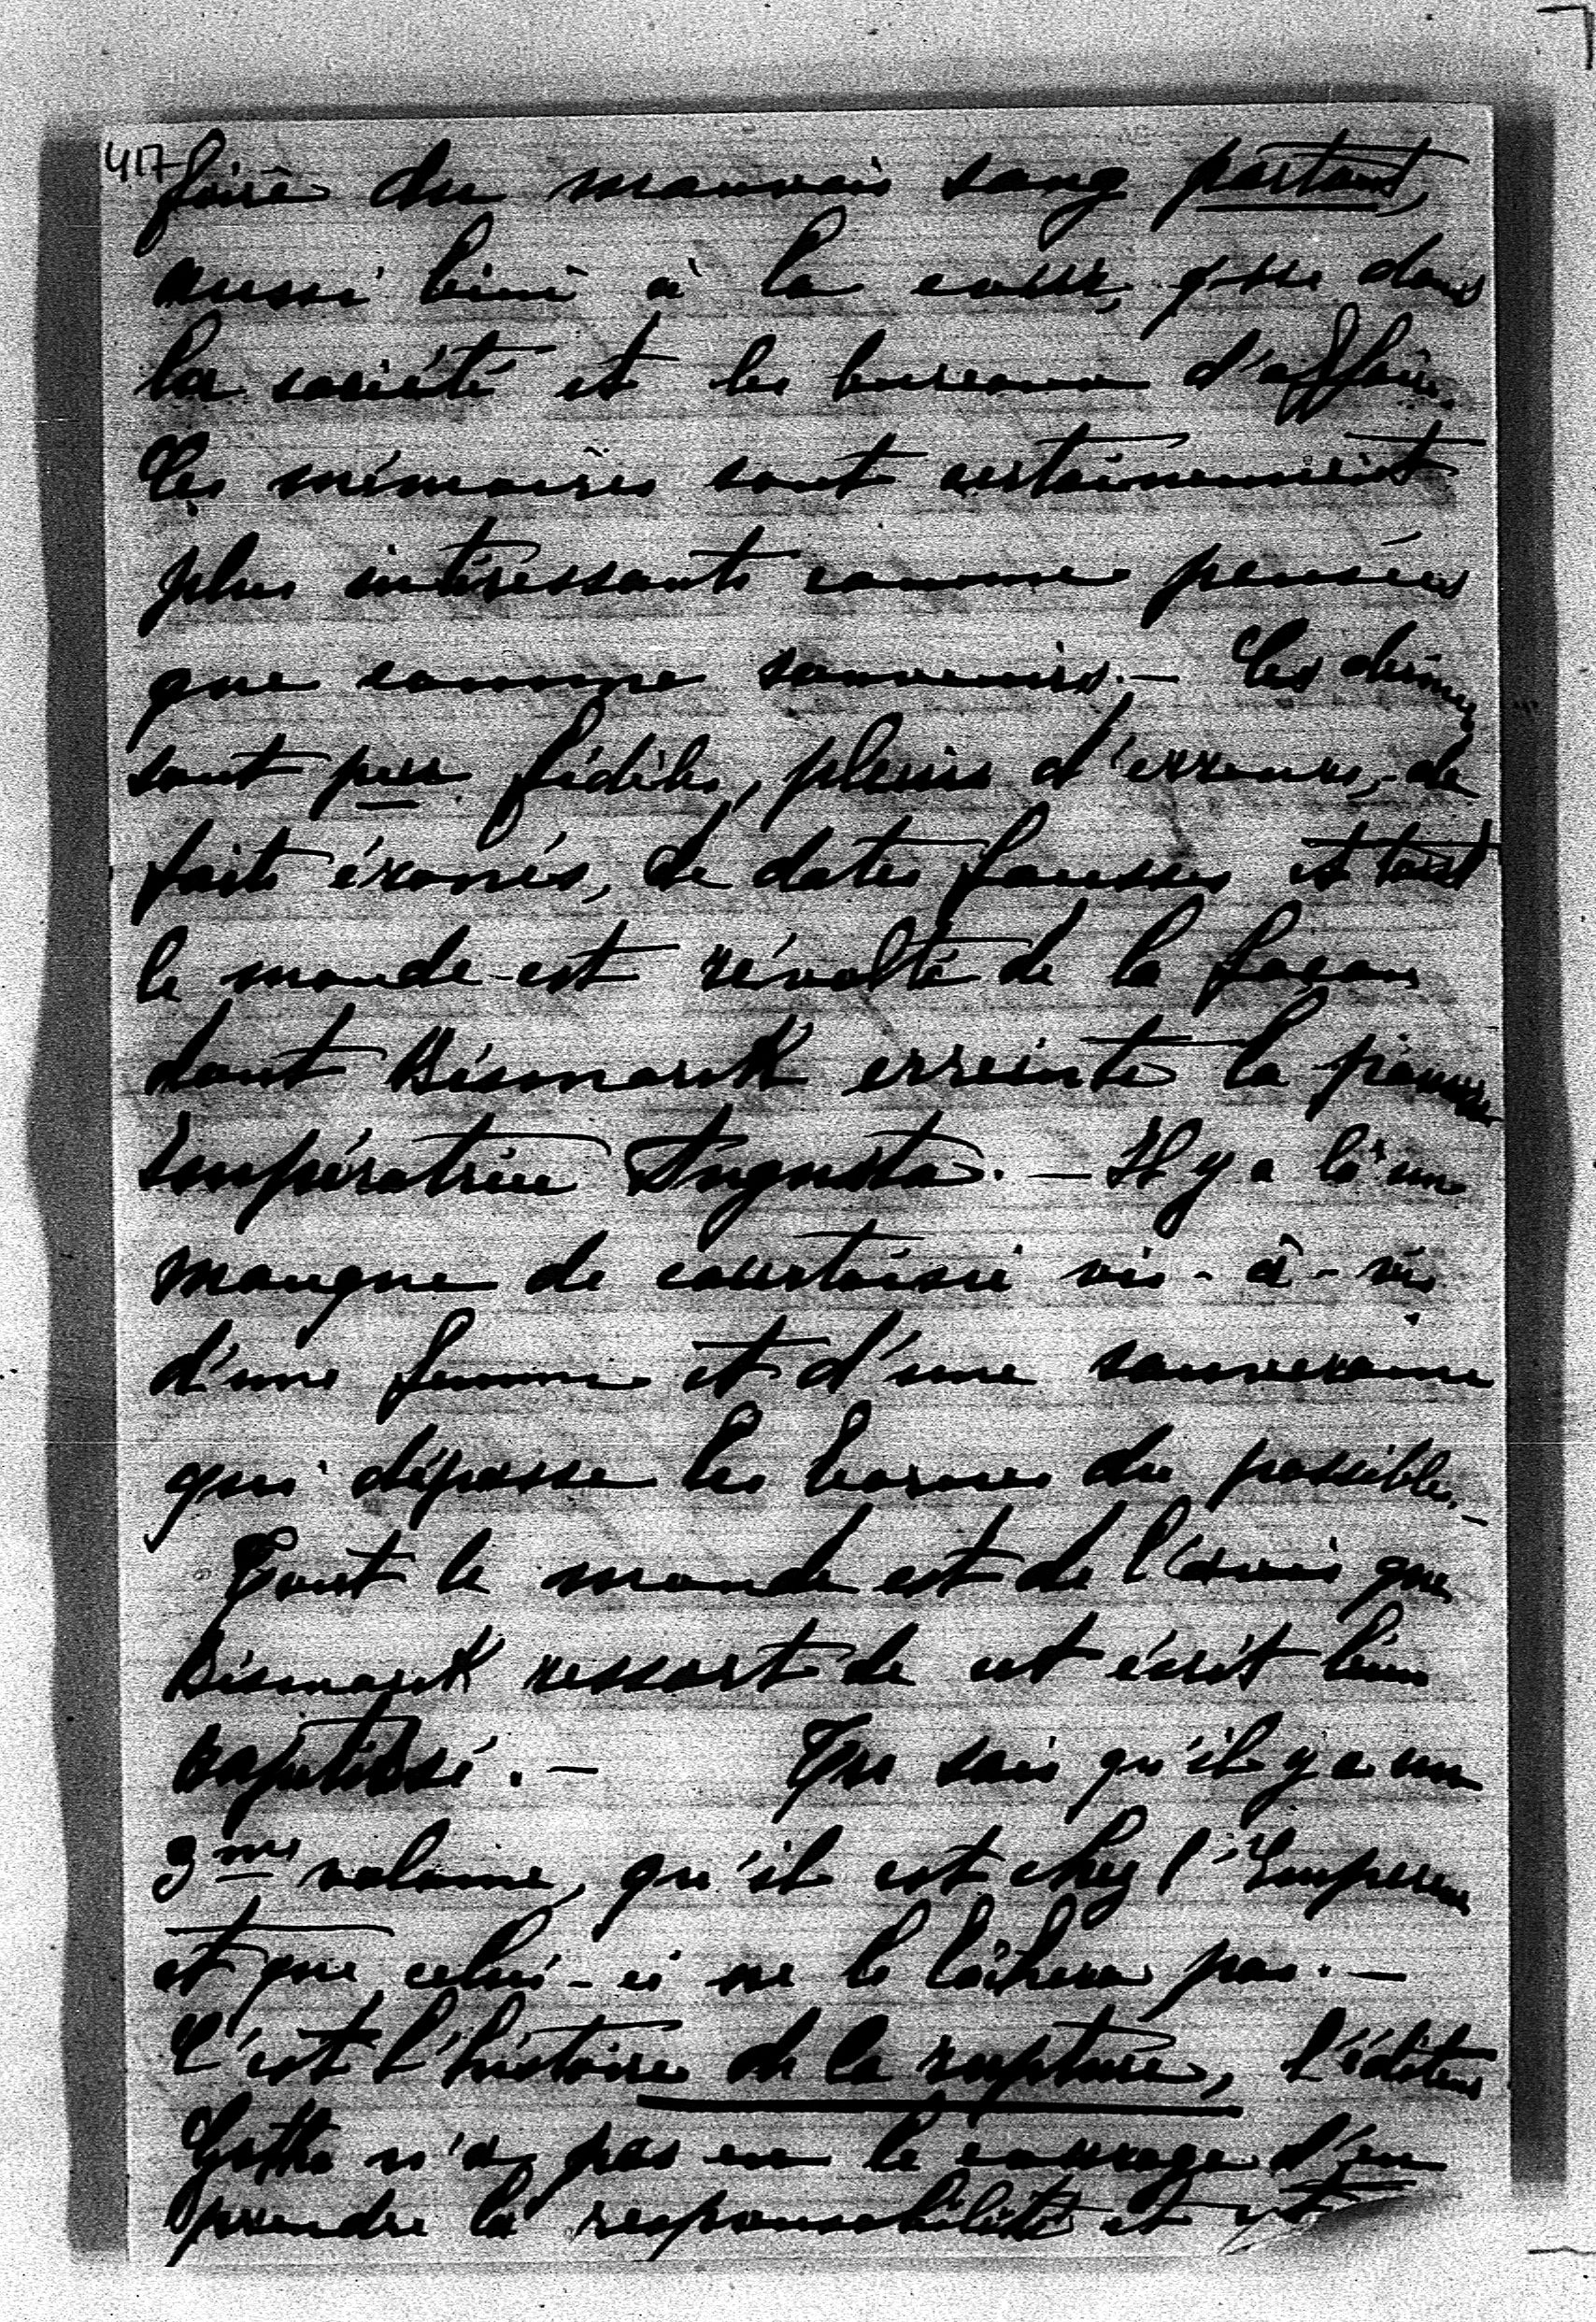 417
faire du mauvais sang partout,
aussi bien à la cour, que dans
la société et les bureaux d'affaires.
Les mémoires sont certainement
plus intéressants comme pensées
que comme souvenirs. – Les derniers
sont peu fidèles, pleins d'erreurs, de
faits éronés, de dates fausses et tout
le monde est révolté de la façon
dont Bismarck erreinte la pauvre
Impératrice Augusta. – Il y a là un
manque de courtoisie vis-à-vis
d'une femme et d'une souveraine
qui dépasse les bornes du possible. –
Tout le monde est de l'avis que
Bismarck ressort de cet écrit bien
rapetissé. – Tu sais qu'il y a un
3me volume, qu'il est chez l'Empereur
et que celui-ci ne le lâchera pas. –
C'est l'histoire de la rupture, l'éditeur
n'a pas eu le courage d'en
prendre la responsabilité et